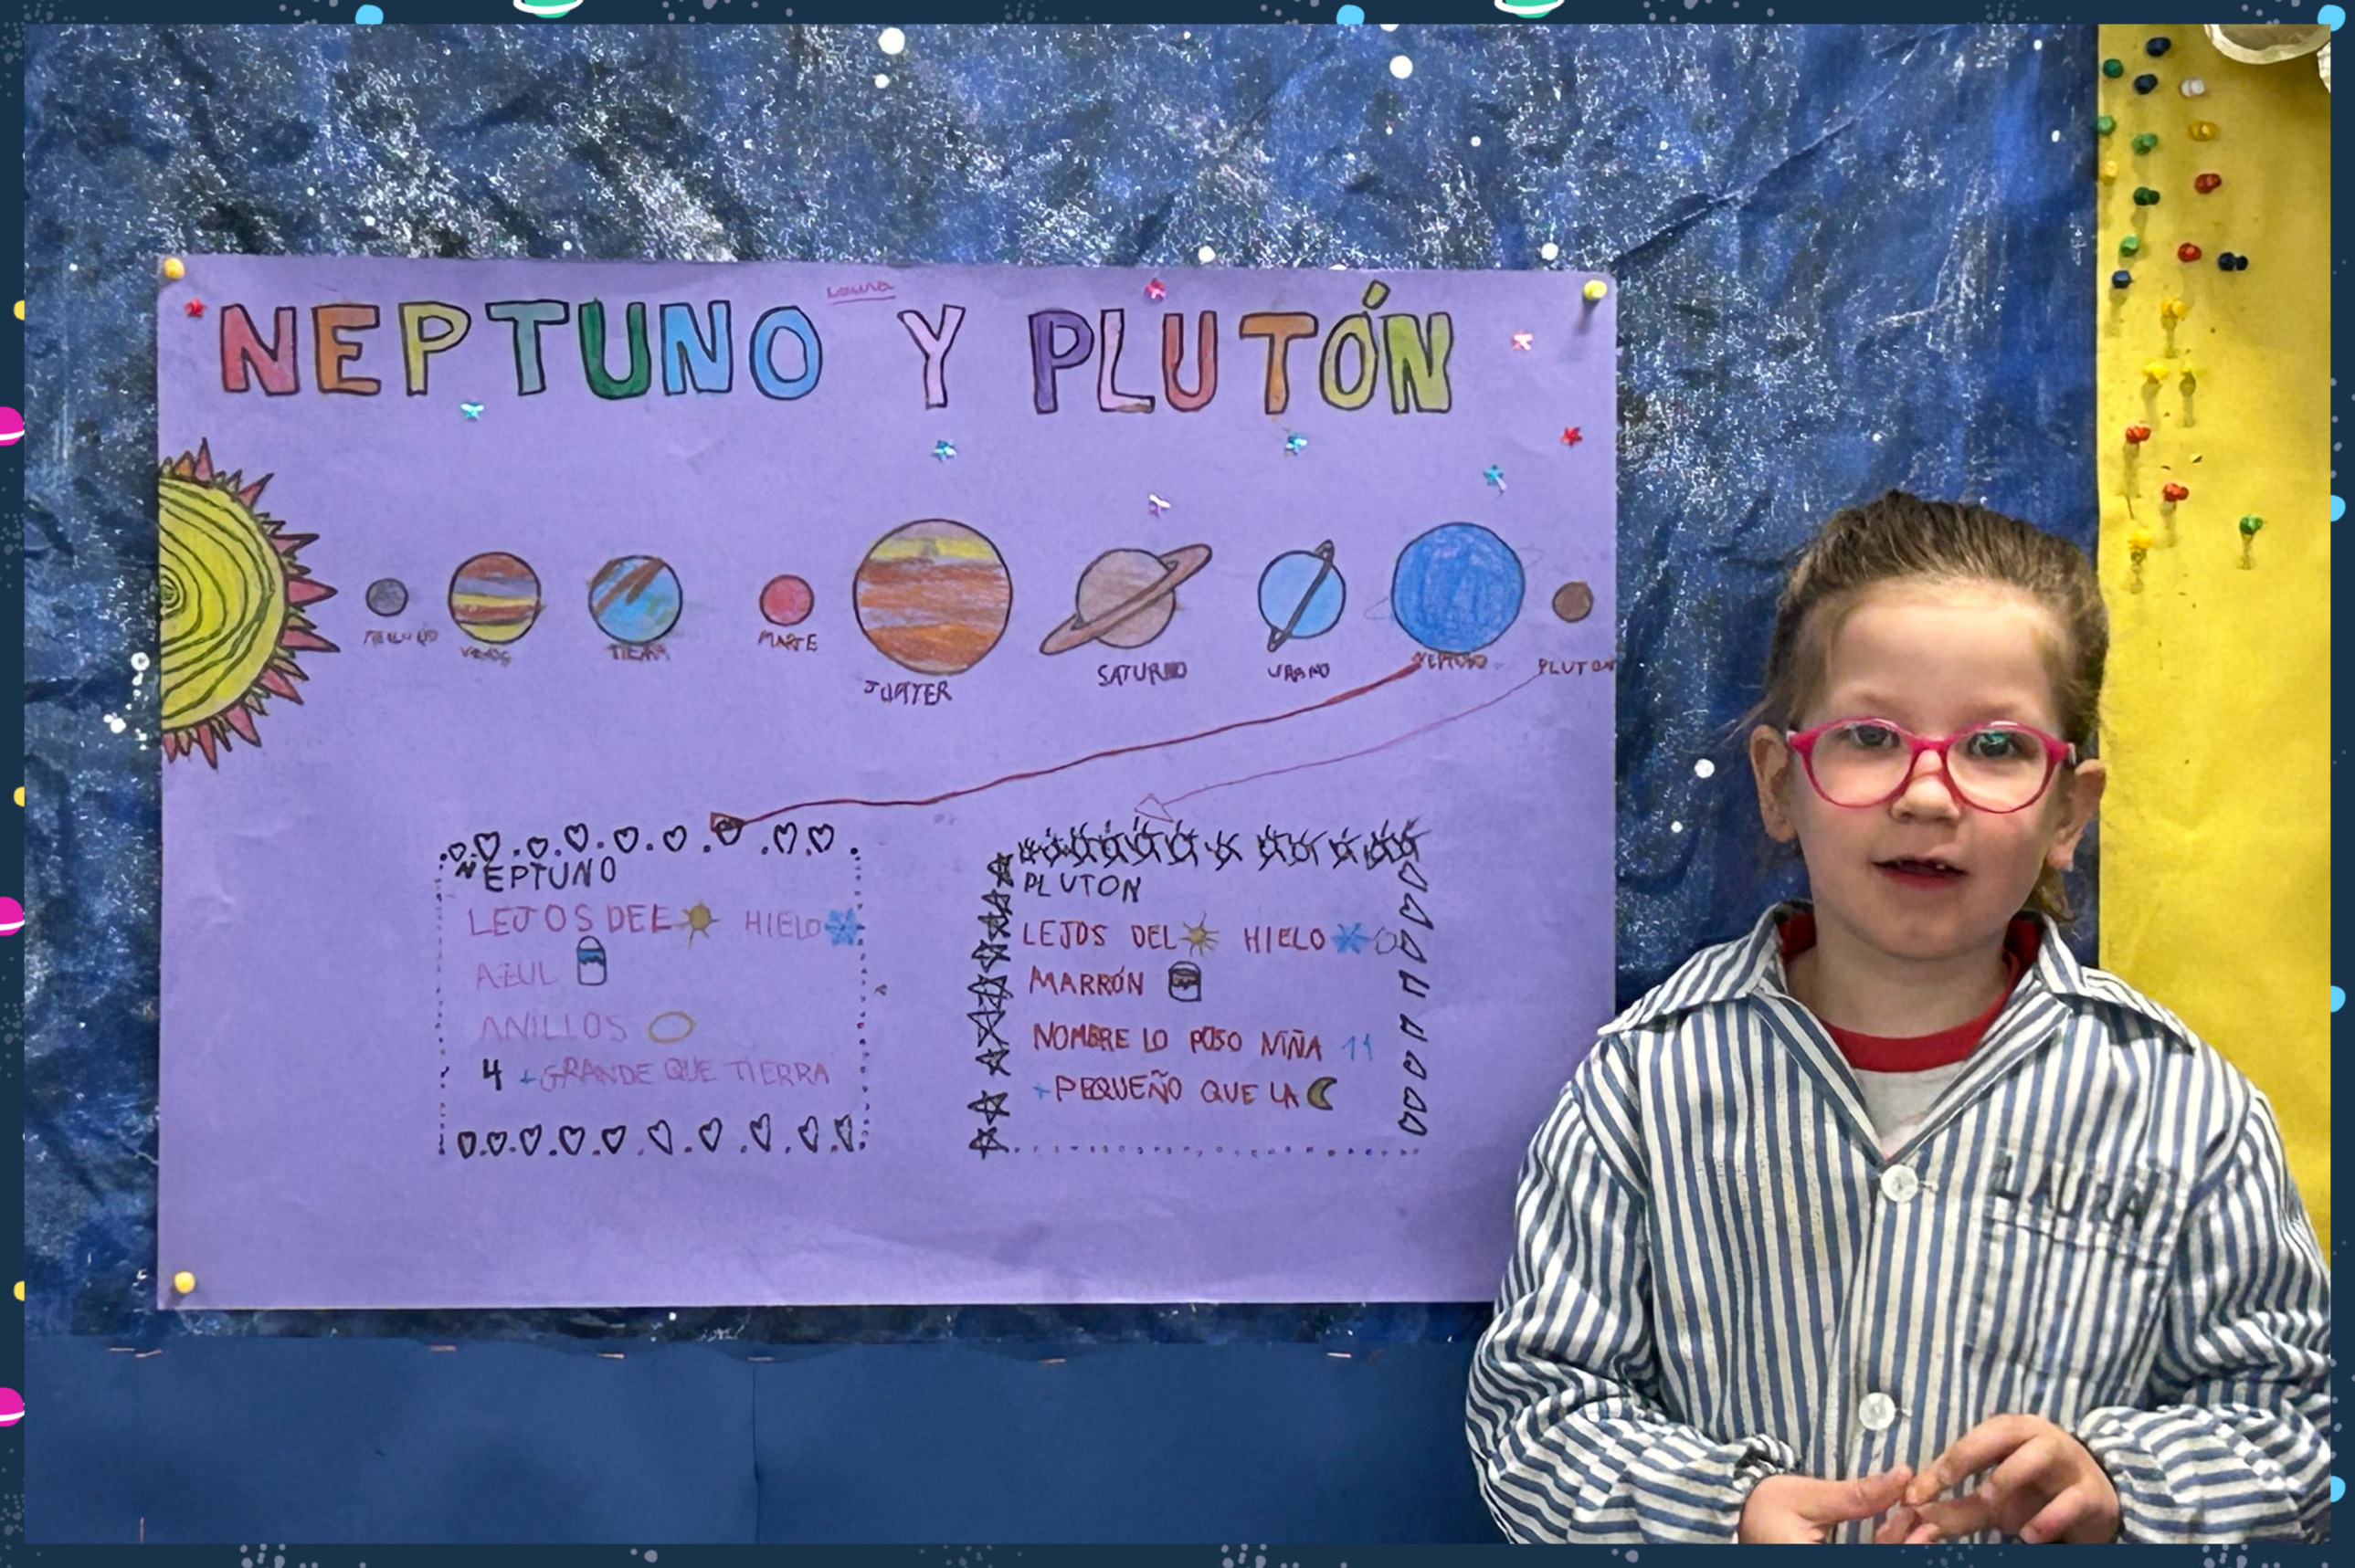 Laura
NEPTUNO Y PLUTÓN
MARTE
JUPITER
SATURNO
URANO
NEPTUNO
PLUTON
TIERRA
NEPTUNO
LEJOS DEL HIELO
AZUL
ANILLOS
4 +GRANDE QUE TIERRA
PLUTON
LEJOS DEL HIELO
MARRÓN
NOMBRE LO PUSO NIÑA 11
+PEQUEÑO QUE LA
LAURA